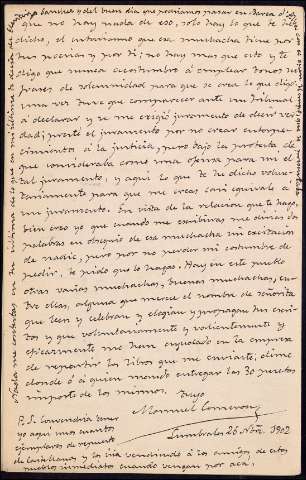 que no hay nada de eso, solo hay lo que te dejo
dicho, el entusiasmo que esa muchacha tiene por
tus poesías y por ti; no hay mas que esto y te
digo que nunca acostumbro á emplear tonos ni
frases de solemnidad para que se crea lo que digo;
una vez tuve que comparecer ante un tribunal
á declarar y se me exigió juramento de decir ver
dad; presté el juramento por no crear entorpe-
cimientos á la justicia, pero bajo la protesta de
que consideraba como una ofensa para mi el
tal juramento, y aqui lo que te he dicho volun-
tariamente para que me creas casi equivale á
un juramento. En vista de la relacion que te hago,
bien creo yo que cuando me escribieras me dirias dos
palabras en obsequio de esa muchacha sin excitación
de nadie, pero por no perder mi costumbre de
pedir, te pido que lo hagas. Hay en este pueblo
otras varias muchachas, buenas muchachas, en-
tre ellas, alguna que merece el nombre de señorita
que leen y celebran y elogian y propagan tus escri-
tos y que voluntariamente y
eficazmente me han ayudado en la empresa
de repartir los libros que me enviaste, dime
donde ó á quien mando entregar las 30 pesetas
importe de los mismos. Tuyo
Manuel
Lumbrales 26 Nbre. 1902
P.S. Convendría tener
yo aqui unos cuantos
ejemplares de repuesto
de Castellanas y los iria vendiendo á los amigos de estos
pueblos inmediatos cuando vengan por acá.